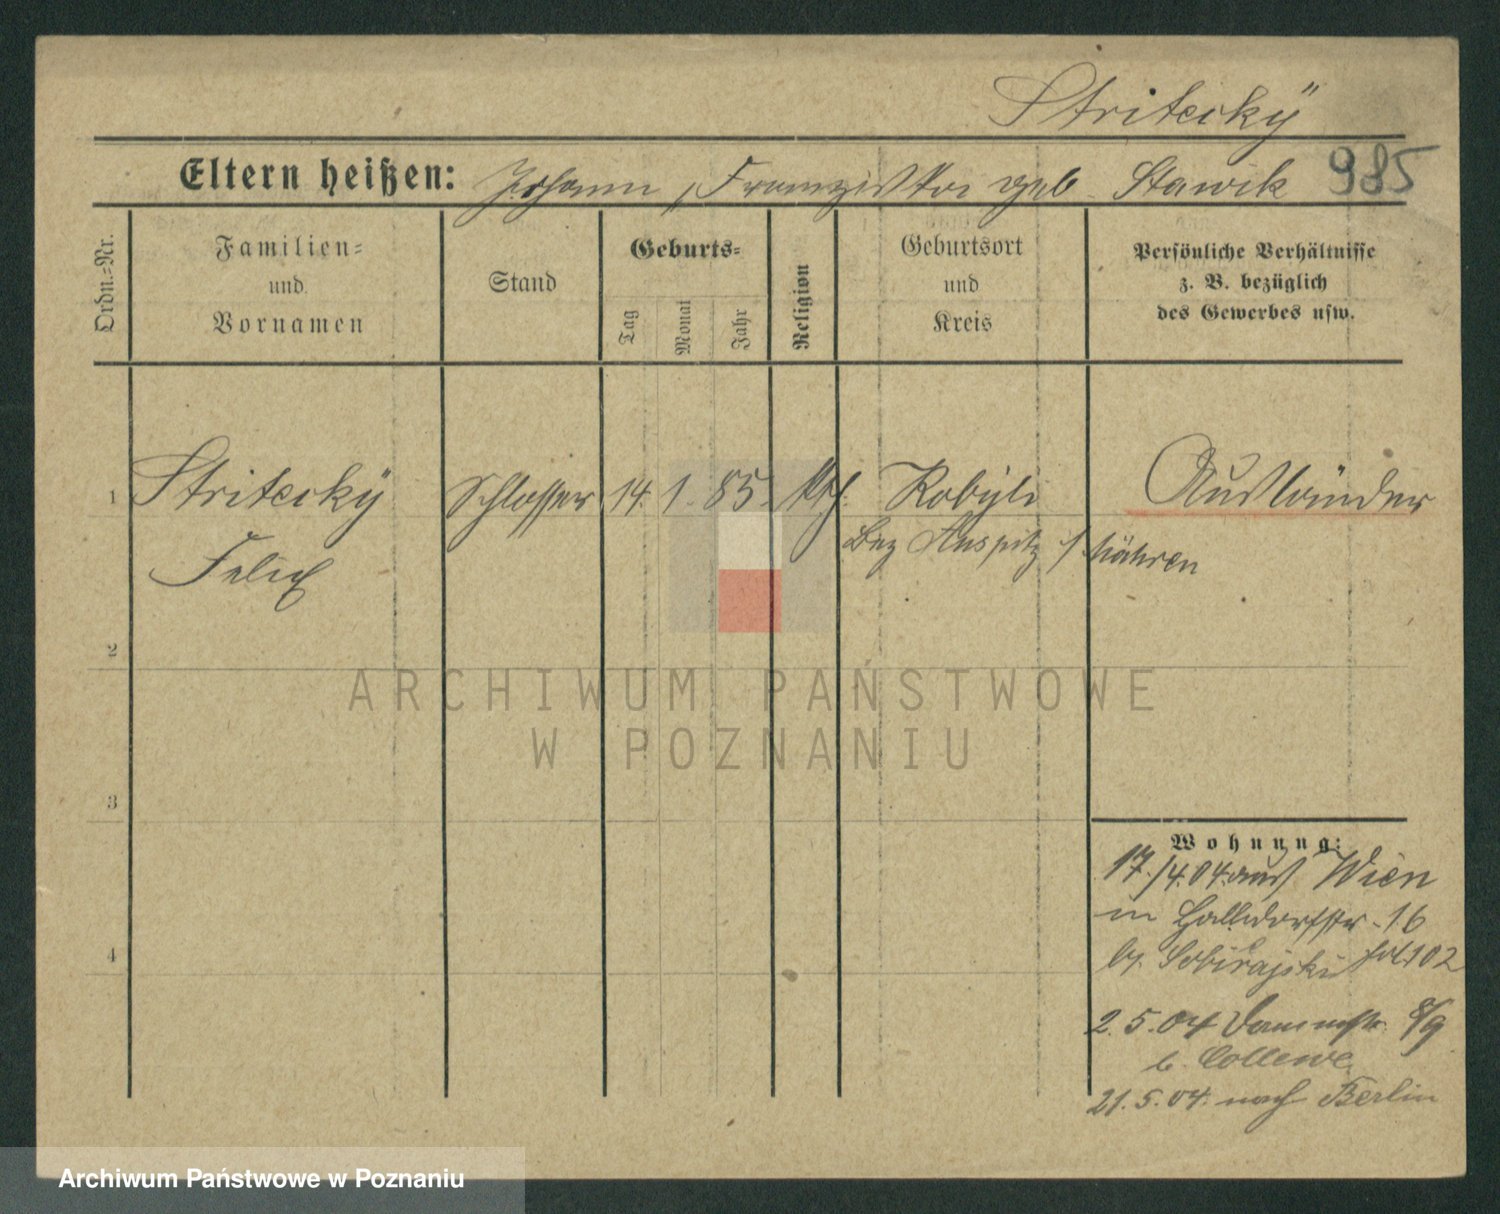 Stritecký
Eltern heißen: Johann, Franziska geb Stawik 985
Ordn.=Nr.
Familien=
und
Vornamen
Stand
Geburts=
Tag
Monat
Jahr
Religion
Geburtsort
und
Kreis
Persönliche Verhältnisse
z. B. bezüglich
des Gewerbes usw.
1 Stritecký Schlosser 14. 1. 85. kth. Kobyli Ausländer
Bez Auspitz / Mähren
Felix
2
ARCHIWUM PAŃSTWOWE
W POZNANIU
3
Wohnung:
17./4.04. aus Wien
in Halldorfstr. 16
b. Sobirajski 102
4
2.5.04 Dammstr. 8/9
b. Collewe
21.5.04. nach Berlin
Archiwum Państwowe w Poznaniu